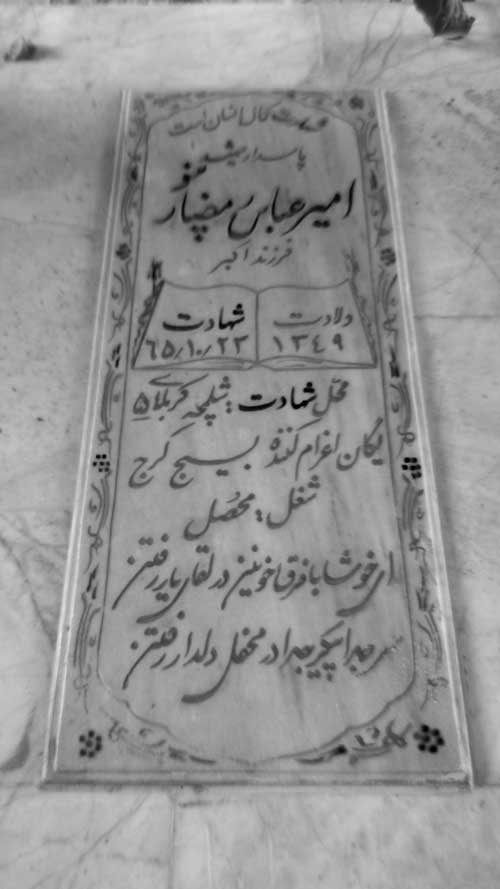 شهادت کمال انسان است
پاسدار شهید
امیرعباس مضپار
فرزند اکبر
ولادت
۱۳۴۹
شهادت
۶۵/۱۰/۲۳
محل شهادت: شلمچه کربلای ۵
یگان اعزام کننده بسیج کرج
شغل: محصل
ای خوشا با فرق خونین در لقای یار رفتن
سر جدا پیکر جدا در محفل دلدار رفتن